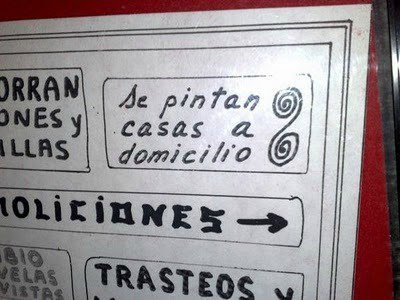 ORRAN
ONES y
ILLAS
Se pintan
casas a
domicilio
MOLICIONES
BIO
VELAS
VISTAS
TRASTEOS y